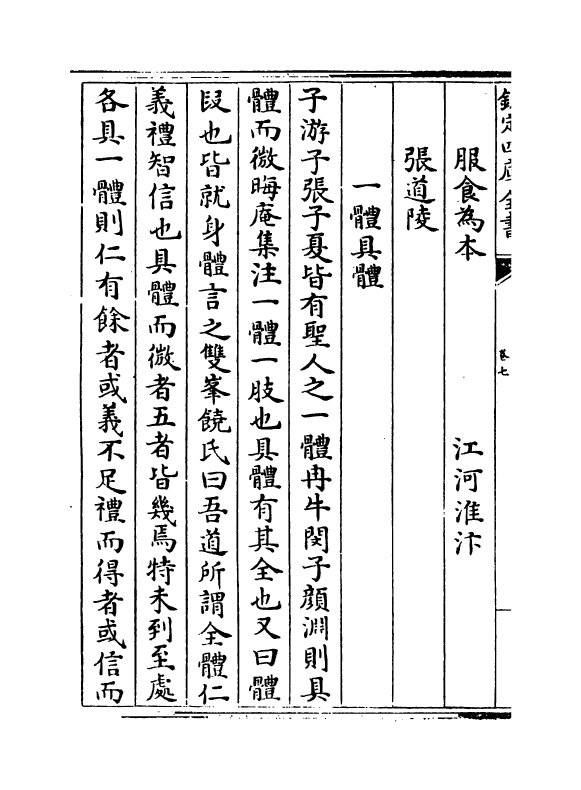 欽定四庫全書
卷七
服食為本　江河淮汴
張道陵
一體具體
子游子張子夏皆有聖人之一體冉牛閔子顏淵則具
體而微晦庵集注一體一肢也具體有其全也又曰體
段也皆就身體言之雙峯饒氏曰吾道所謂全體仁
義禮智信也具體而微者五者皆幾焉特未到至處
各具一體則仁有餘者或義不足禮而得者或信而